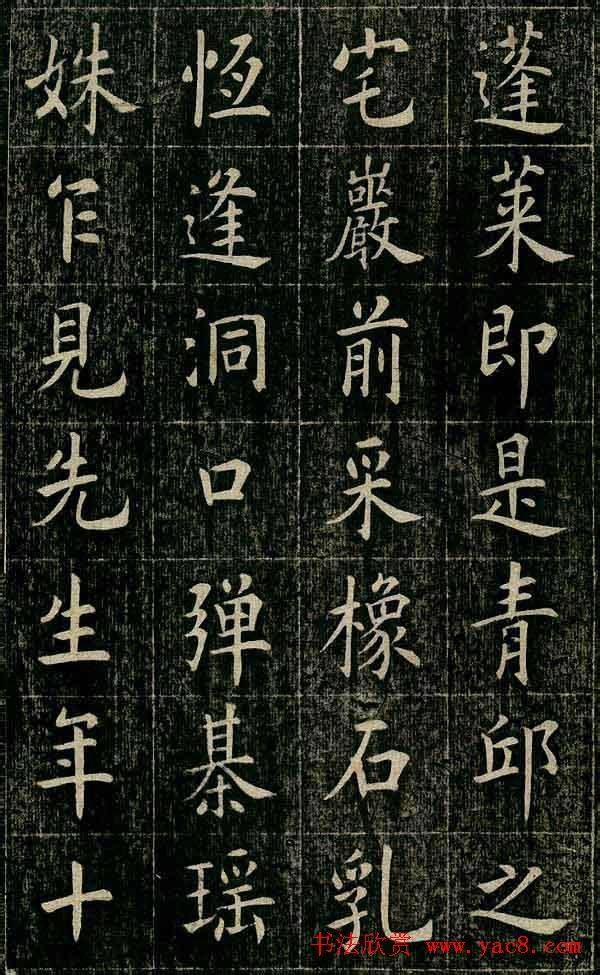 蓬莱即是青邱之
宅巖前采橡石乳
恆逢洞口弹棊瑶
姝乍見先生年十
书法欣赏 www.yac8.com